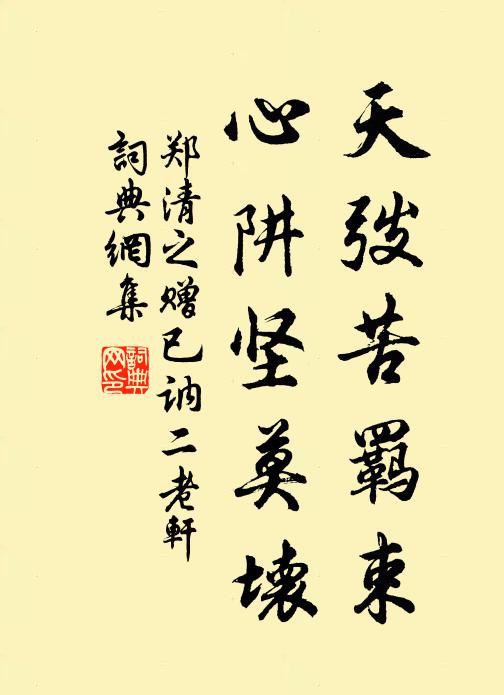 天弢苦羁束
心阱坚莫壊
郑清之赠已讷二老軒
詞典網集
詞典網印